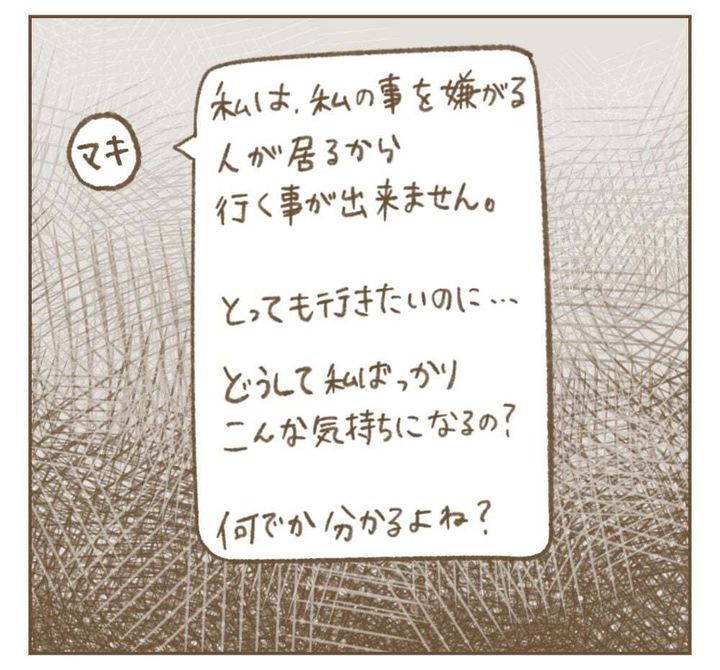 マキ
私は、私の事を嫌がる
人が居るから
行く事が出来ません。
とっても行きたいのに…
どうして私ばっかり
こんな気持ちになるの？
何でか分かるよね？